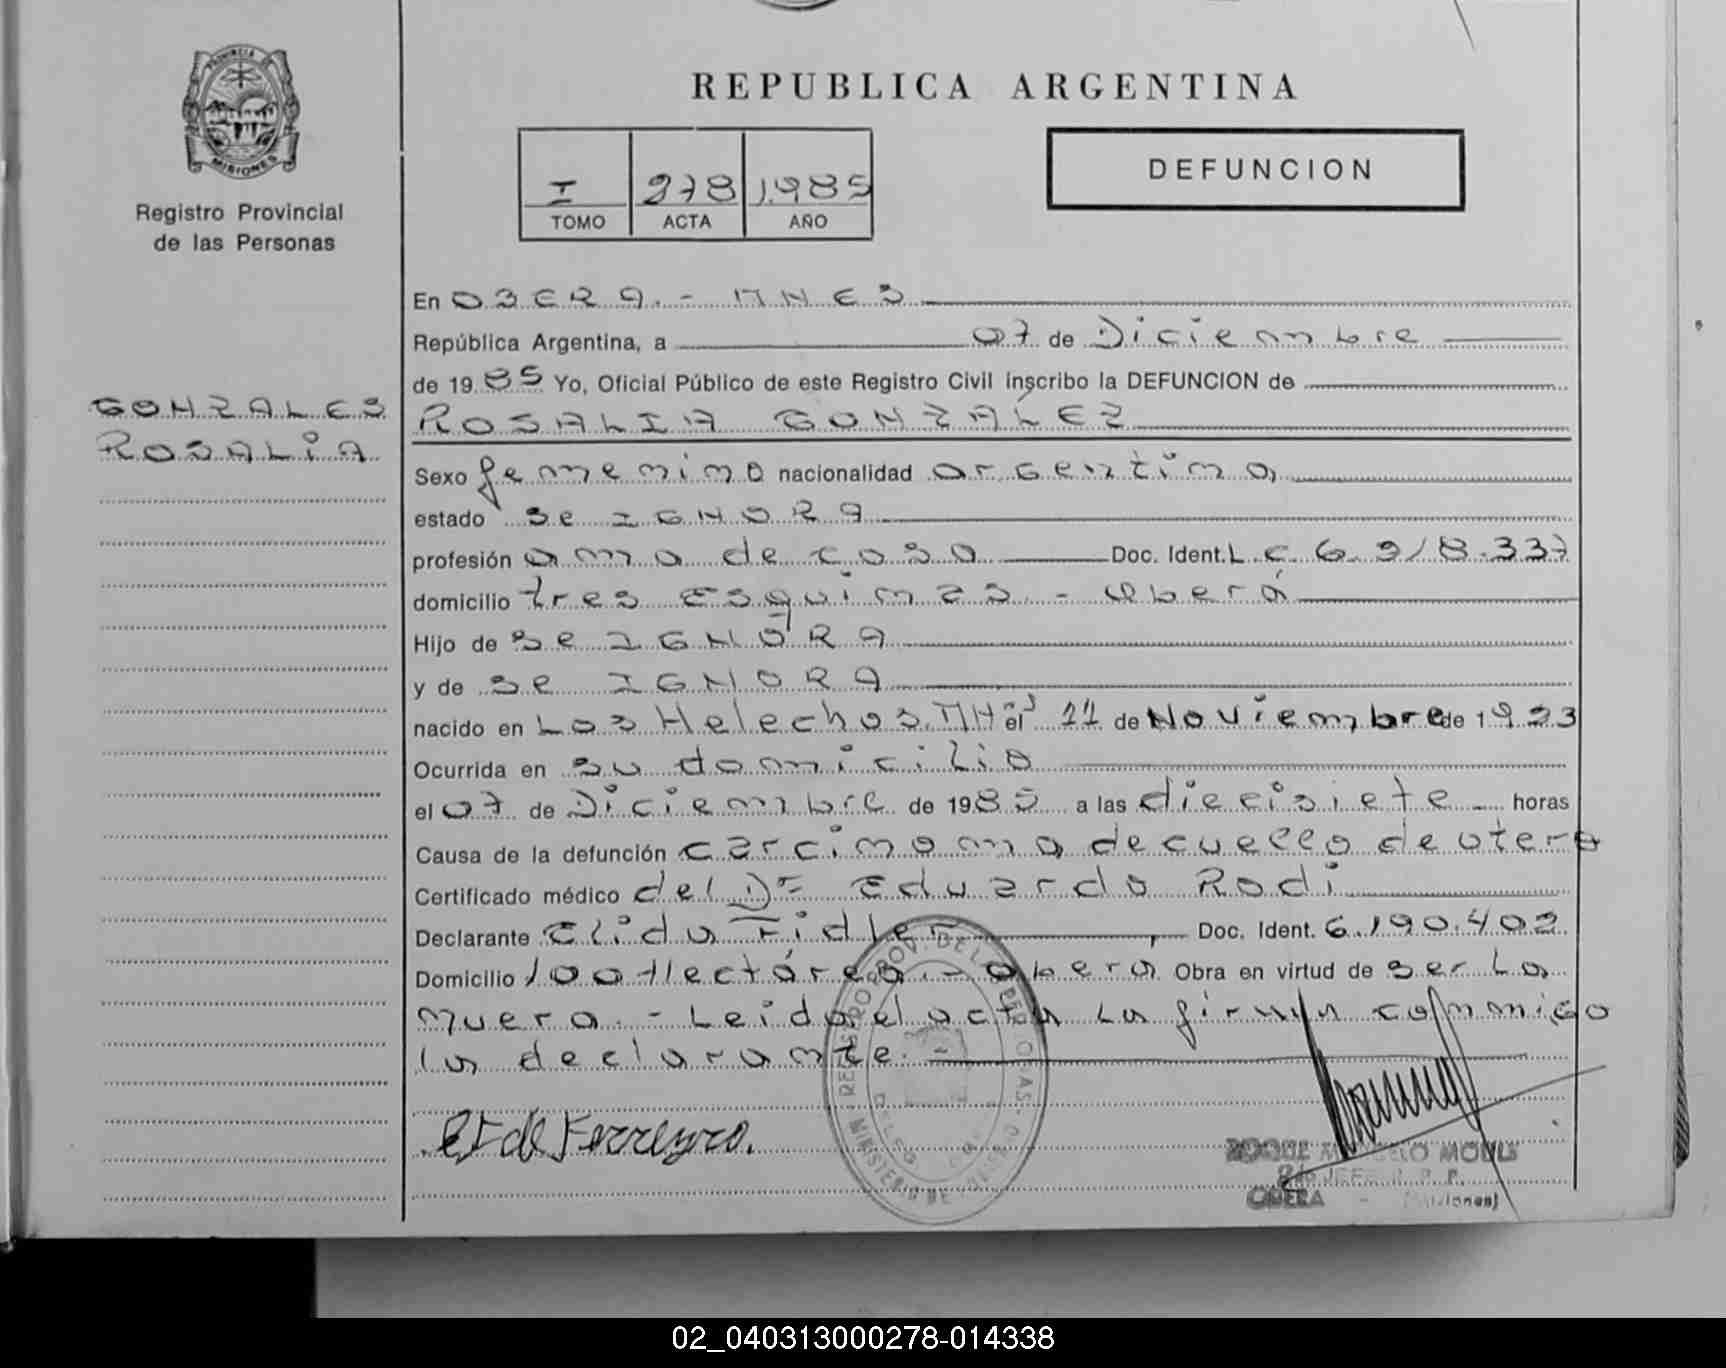 PROVINCIA DE
MISIONES
Registro Provincial
de las Personas
GONZALES
ROSALIA
REPUBLICA ARGENTINA
I 278 1.985
TOMO ACTA AÑO
DEFUNCION
En OBERA. - MNES
República Argentina, a 07 de Diciembre
de 1985 Yo, Oficial Público de este Registro Civil inscribo la DEFUNCION de
ROSALIA GONZALEZ
Sexo femenino nacionalidad argentina
estado se IGNORA
profesión ama de casa Doc. Ident. L C 6.918.337
domicilio tres Esquinas - Oberá
Hijo de se IGNORA
y de se IGNORA
nacido en Los Helechos. MN el 11 de Noviembre de 1923
Ocurrida en su domicilio
el 07 de Diciembre de 1985 a las diecisiete horas
Causa de la defunción carcinoma de cuello de utero
Certificado médico del Dr Eduardo Rodi
Declarante Elida Fidler, Doc. Ident. 6.190.402
Domicilio 100 Hectáreas. - Obera Obra en virtud de ser La
nuera. - Leida el acta La firma conmigo
la declarante. -
EF de Ferreyra.
REGISTRO PROV. DE LAS PERSONAS
MINISTERIO DE
ROQUE MOULS
JEFE R. P. P.
OBERA - (Misiones)
02_040313000278-014338